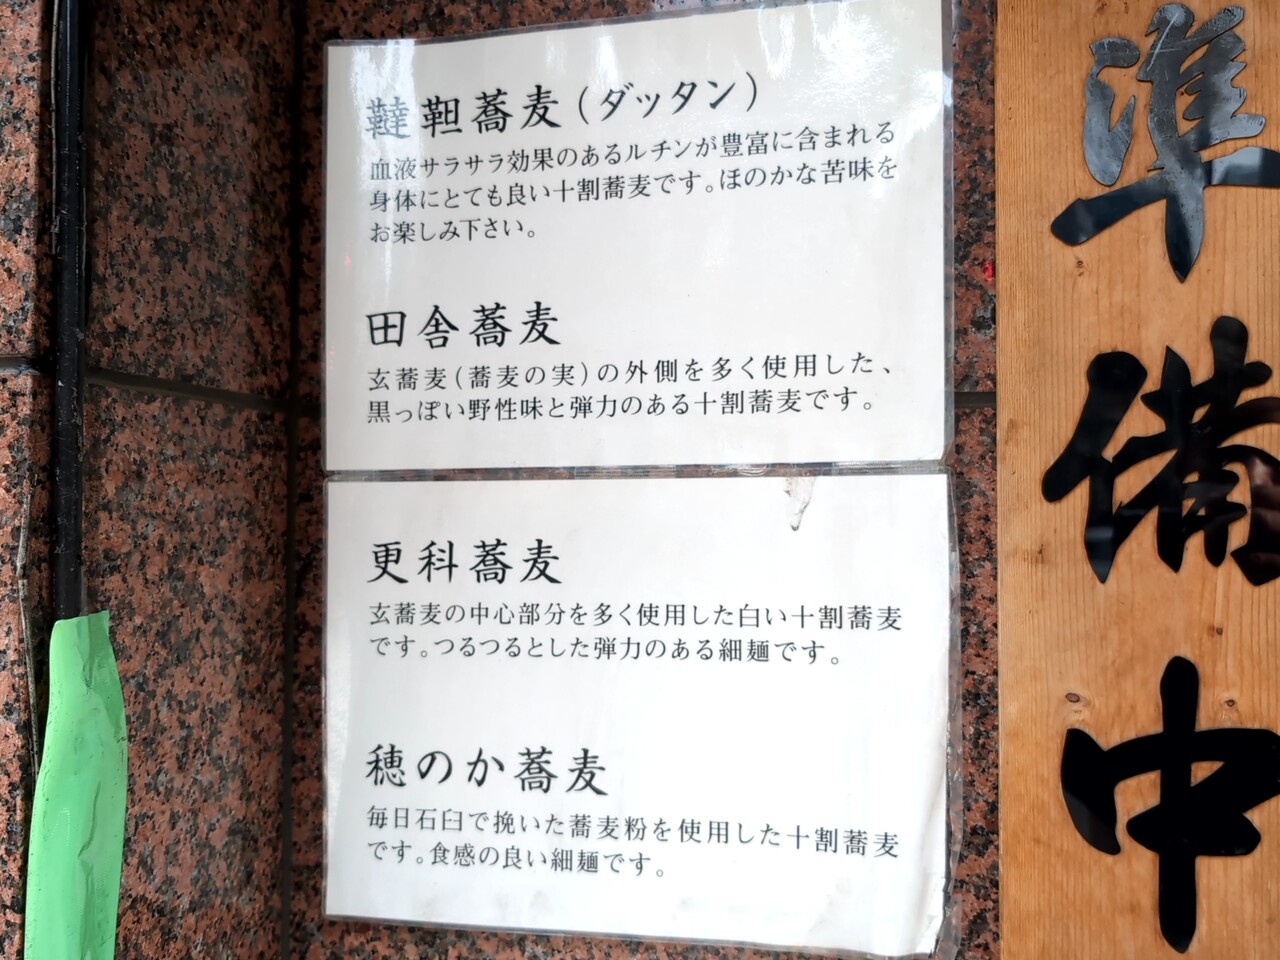 韃靼蕎麦(ダッタン)
血液サラサラ効果のあるルチンが豊富に含まれる
身体にとても良い十割蕎麦です。ほのかな苦味を
お楽しみ下さい。
田舎蕎麦
玄蕎麦(蕎麦の実)の外側を多く使用した、
黒っぽい野性味と弾力のある十割蕎麦です。
更科蕎麦
玄蕎麦の中心部分を多く使用した白い十割蕎麦
です。つるつるとした弾力のある細麺です。
穂のか蕎麦
毎日石臼で挽いた蕎麦粉を使用した十割蕎麦
です。食感の良い細麺です。
準備中